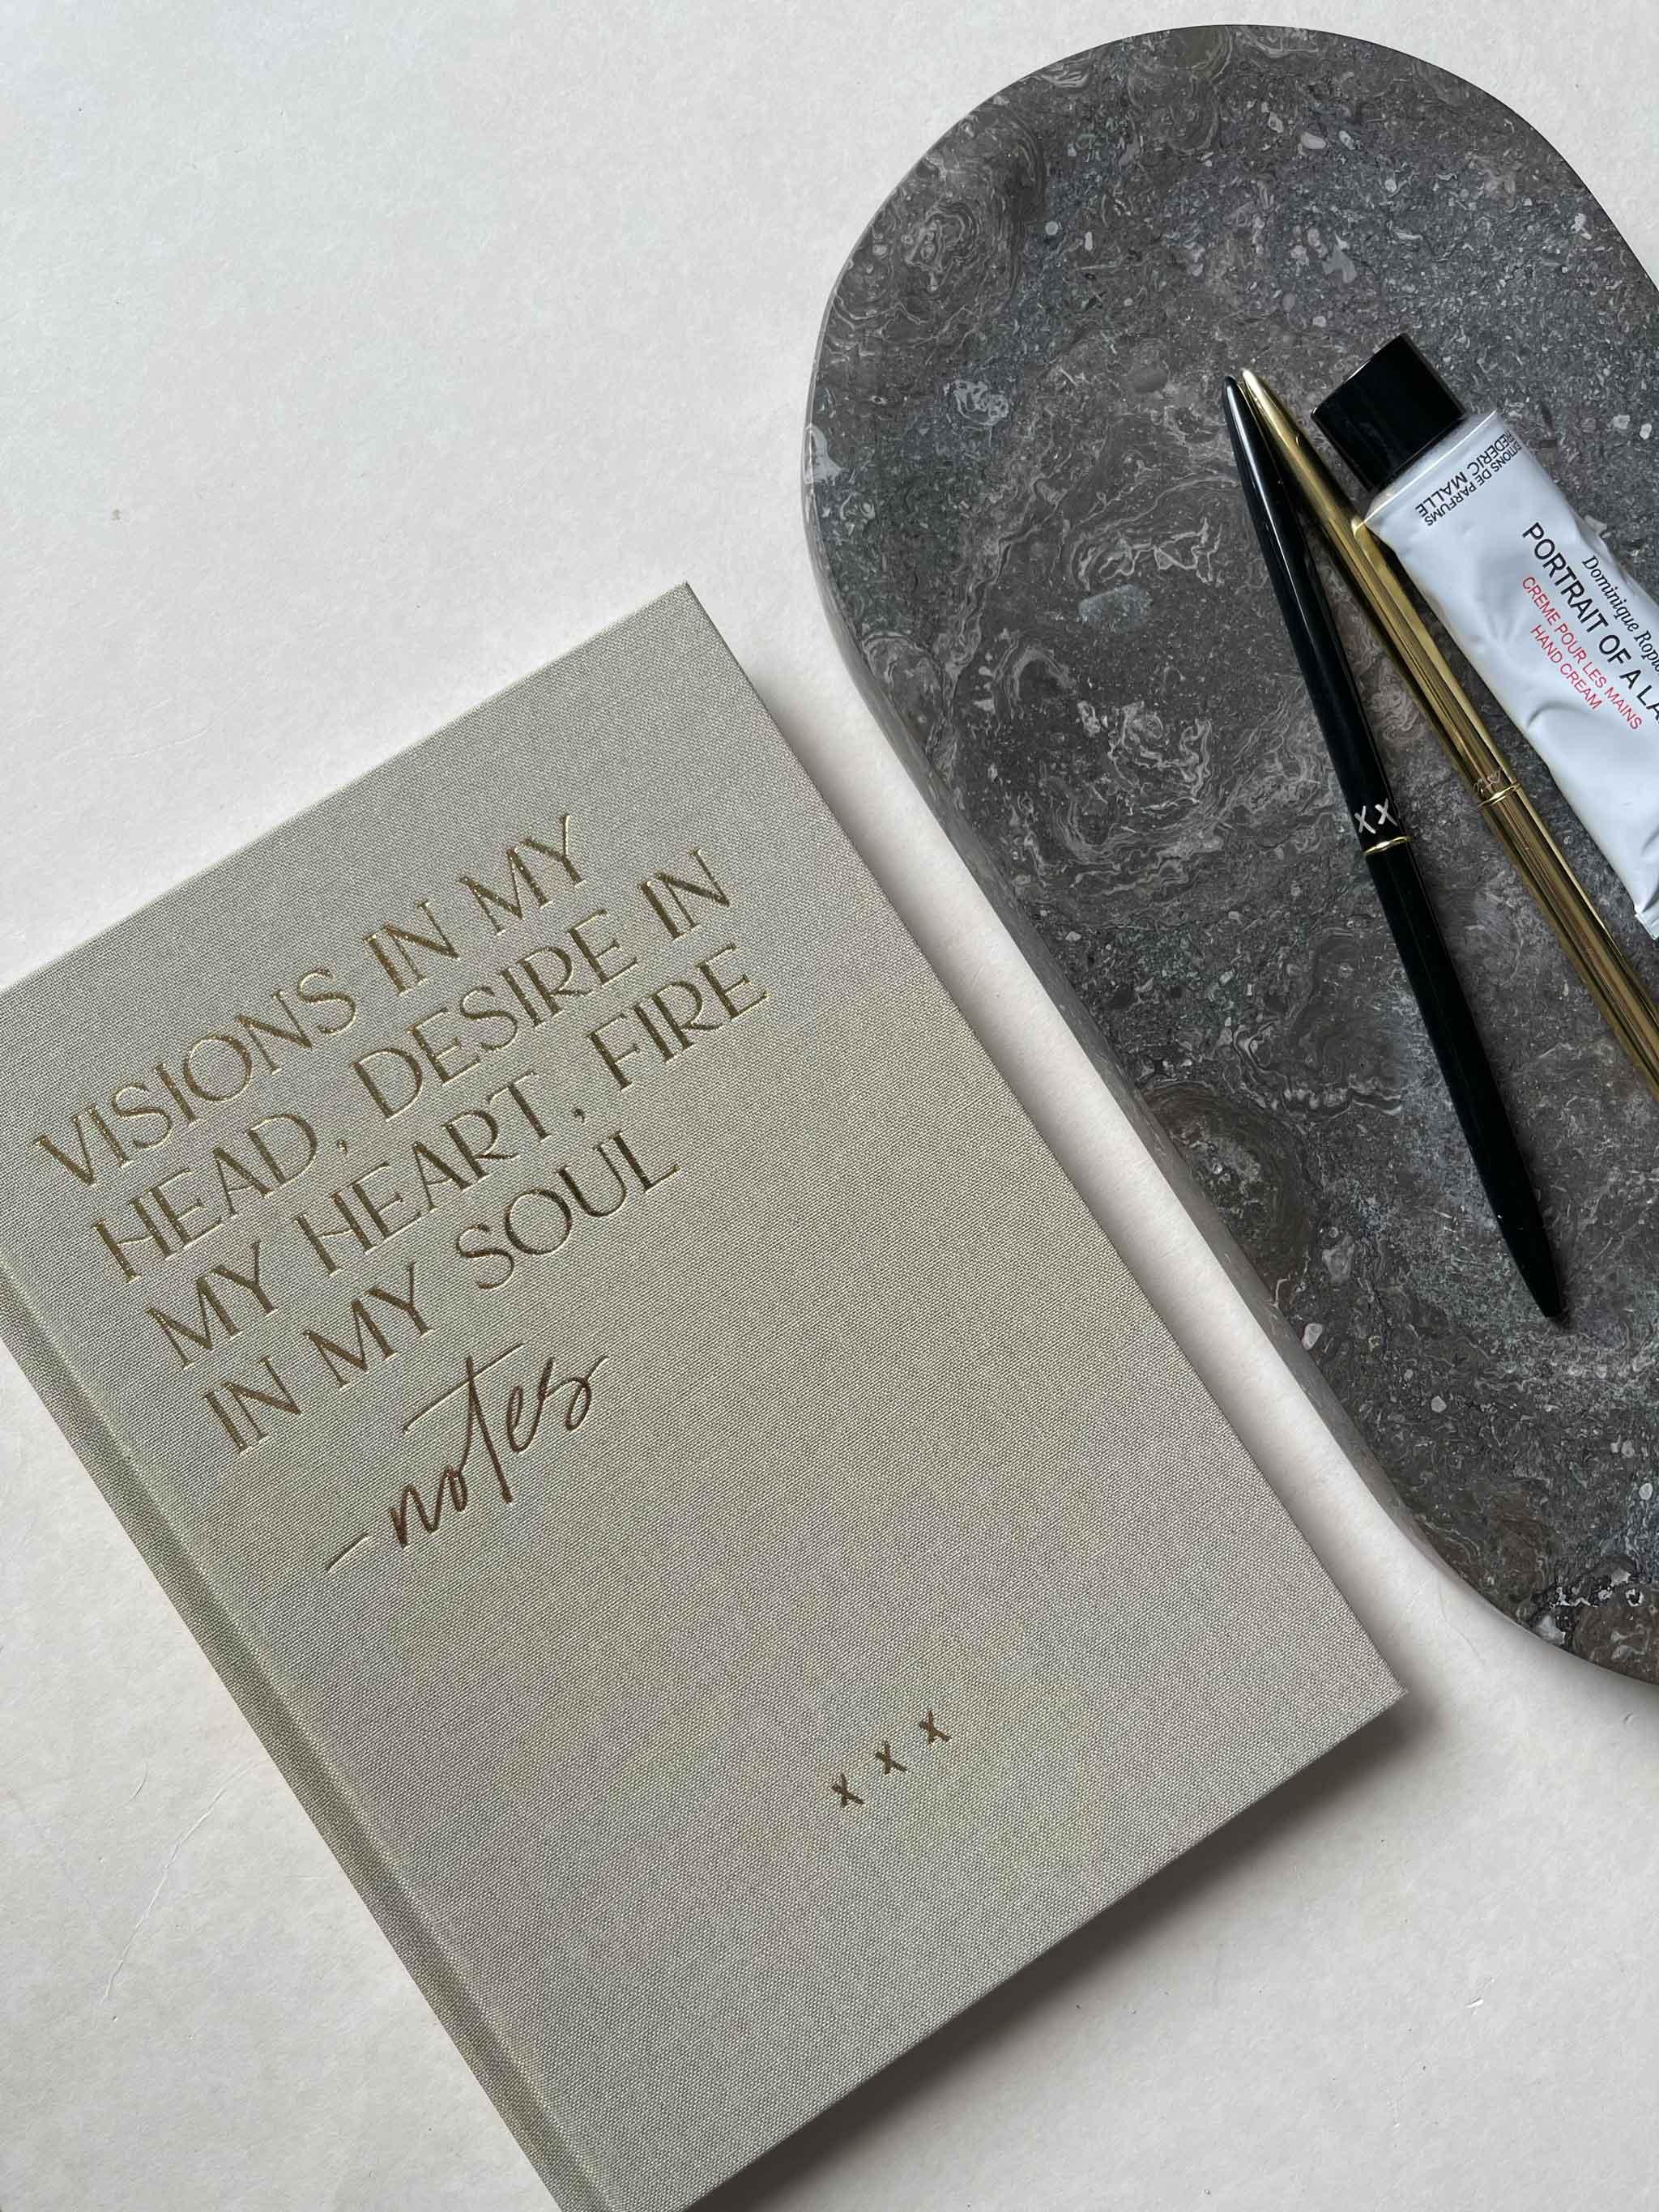 VISIONS IN MY
HEAD, DESIRE IN
MY HEART, FIRE
IN MY SOUL
-notes
X X X
X X
ÉDITIONS DE PARFUMS
FRÉDÉRIC MALLE
Dominique
PORTRAIT OF A
CREME POUR LES MAINS
HAND CREAM